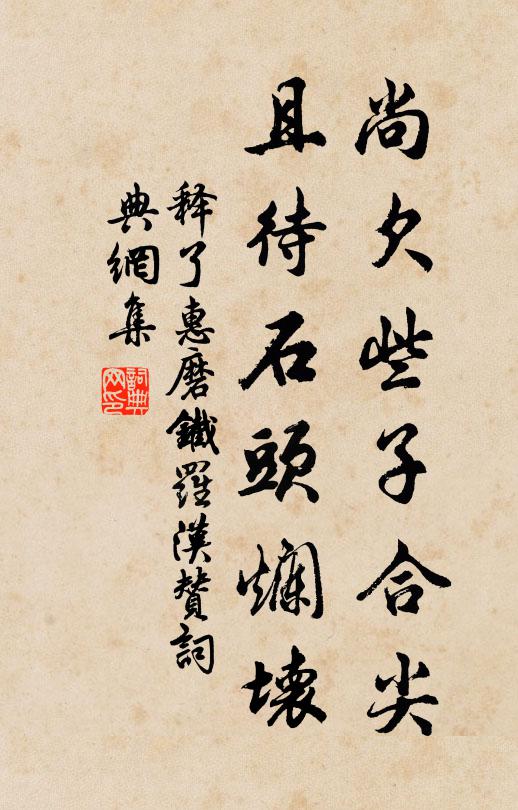 尚欠些子合尖
且待石頭爛壞
释了惠磨鐵羅漢贊詞
典網集
詞典
网印